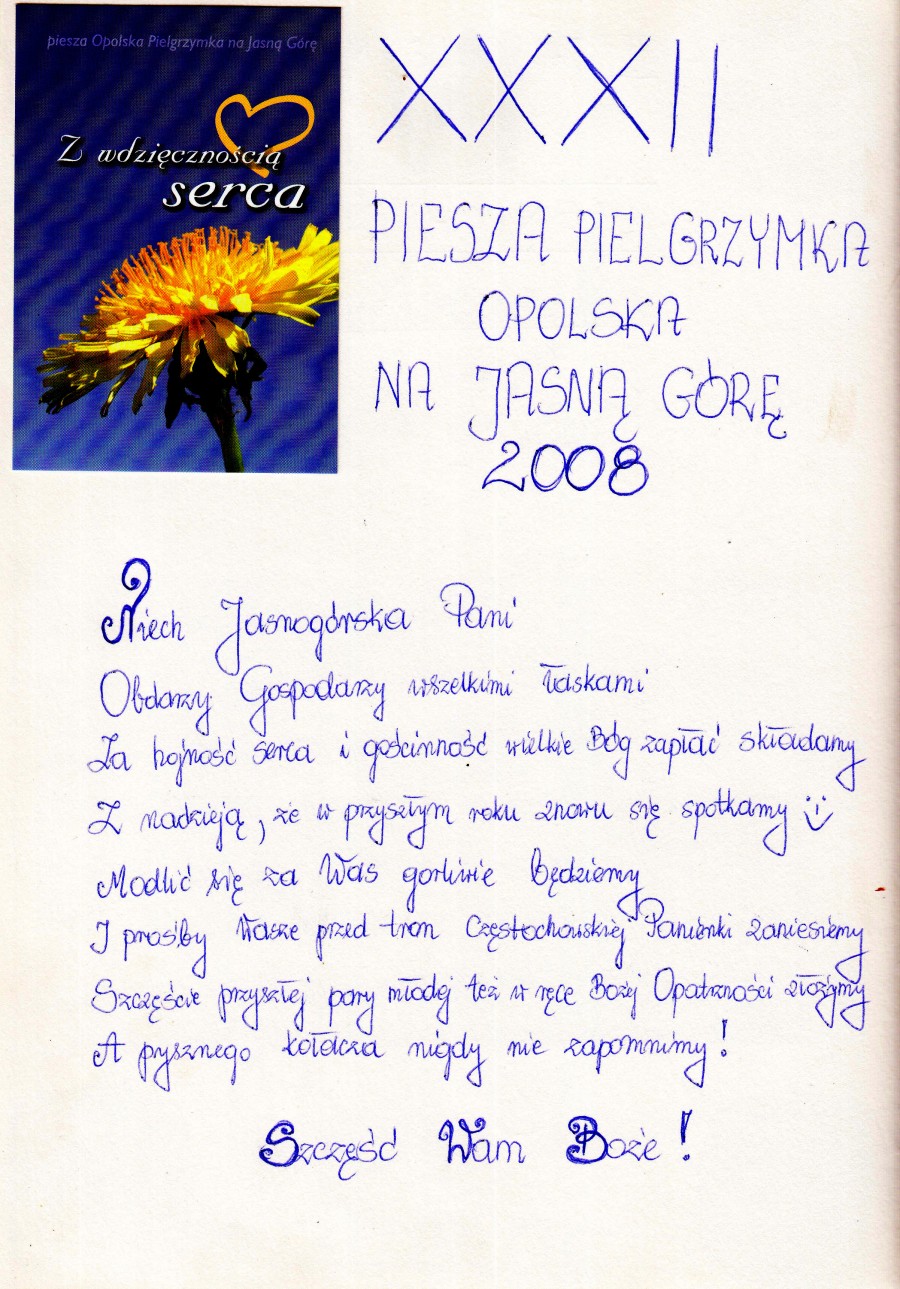 piesza Opolska Pielgrzymka na Jasną Górę
Z wdzięcznością
serca
XXXII
PIESZA PIELGRZYMKA
OPOLSKA
NA JASNĄ GÓRĘ
2008
Niech Jasnogórska Pani
Obdarzy Gospodarzy wszelkimi łaskami
Za hojność serca i gościnność wielkie Bóg zapłać składamy
Z nadzieją, że w przyszłym roku znowu się spotkamy :)
Modlić się za Was gorliwie Będziemy
I prośby Wasze przed tron Częstochowskiej Panienki zaniesiemy
Szczęście przyszłej pary młodej też w ręce Bożej Opatrzności złożymy
A pysznego kołocza nigdy nie zapomnimy!
Szczęść Wam Boże!